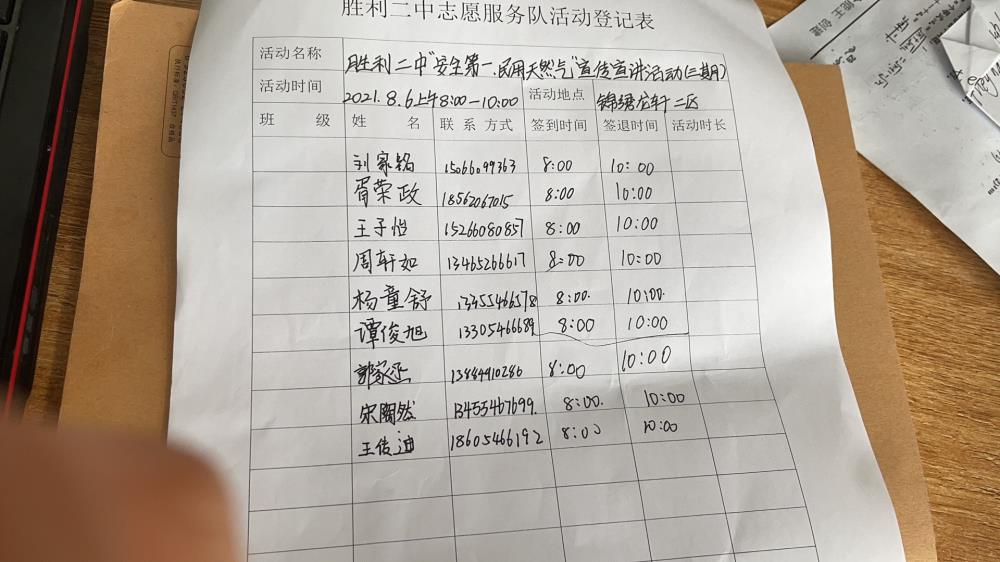 胜利二中志愿服务队活动登记表
活动名称 胜利二中"安全第一,民用天然气"宣传宣讲活动(三期)
活动时间 2021.8.6上午8:00—10:00 活动地点 锦绣龙轩二区
班 级 姓 名 联系方式 签到时间 签退时间 活动时长
刘家铭 15066099363 8:00 10:00
胥荣政 18562067015 8:00 10:00
王子怡 15266080857 8:00 10:00
周轩如 13465266617 8:00 10:00
杨童舒 13455466578 8:00. 10:00.
谭俊旭 13305466689 8:00 10:00
郭家丞 13884910286 8:00 10:00
宋陶然 13455467699. 8:00. 10:00
王传迪 18605466192 8:00 10:00